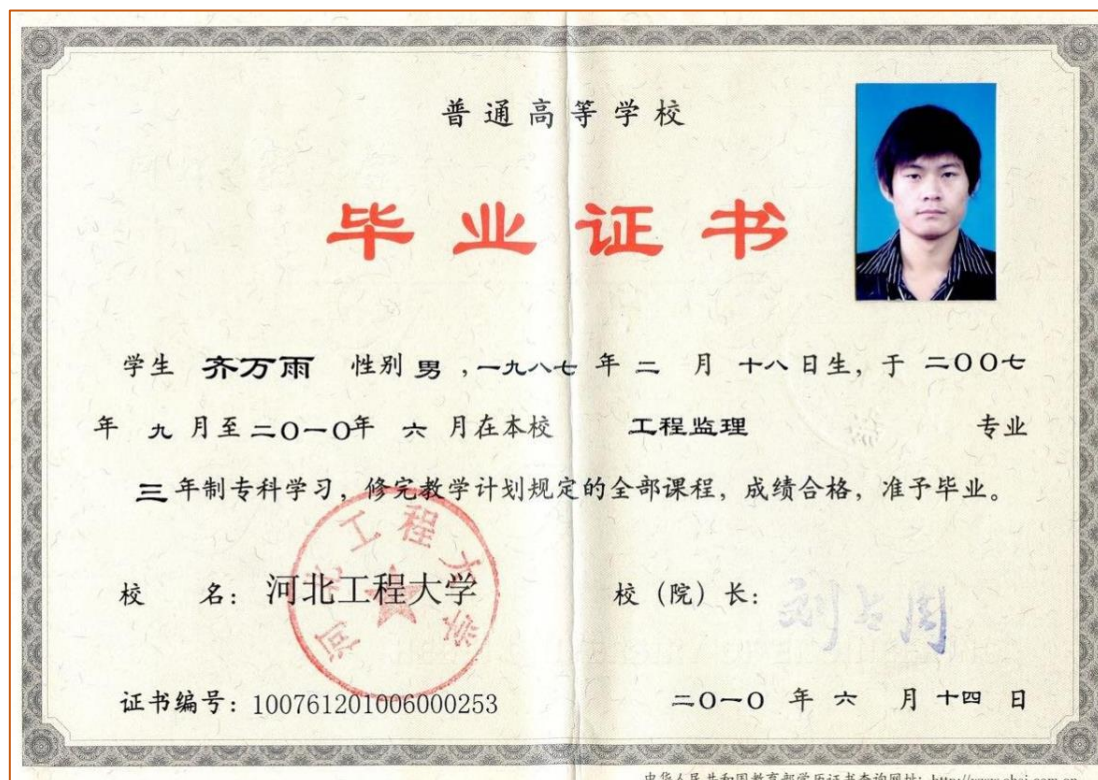 普通高等学校
毕业证书
学生 齐万雨 性别 男，一九八七 年 二 月 十八 日生，于 二〇〇七
年 九 月至 二〇一〇 年 六 月在本校 工程监理 专业
三 年制专科学习，修完教学计划规定的全部课程，成绩合格，准予毕业。
校 名：河北工程大学 校（院）长：
河北工程大学
证书编号：100761201006000253 二〇一〇 年 六 月 十四 日
中华人民共和国教育部学历证书查询网址：http://www.chsi.com.cn